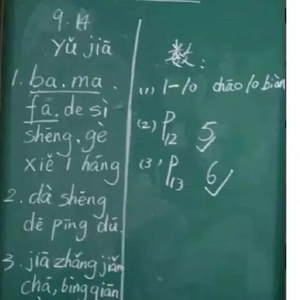 9.14
yǔ jiā
1. ba.ma.
fā.de sì
shēng.gè
xiě 1 háng
2. dà shēng
dē pīng dú.
3. jiā zhǎng jiǎn
chá, bìng qiān
数:
(1) 1-10 chāo 10 biàn
(2) P12 5
(3) P13 6